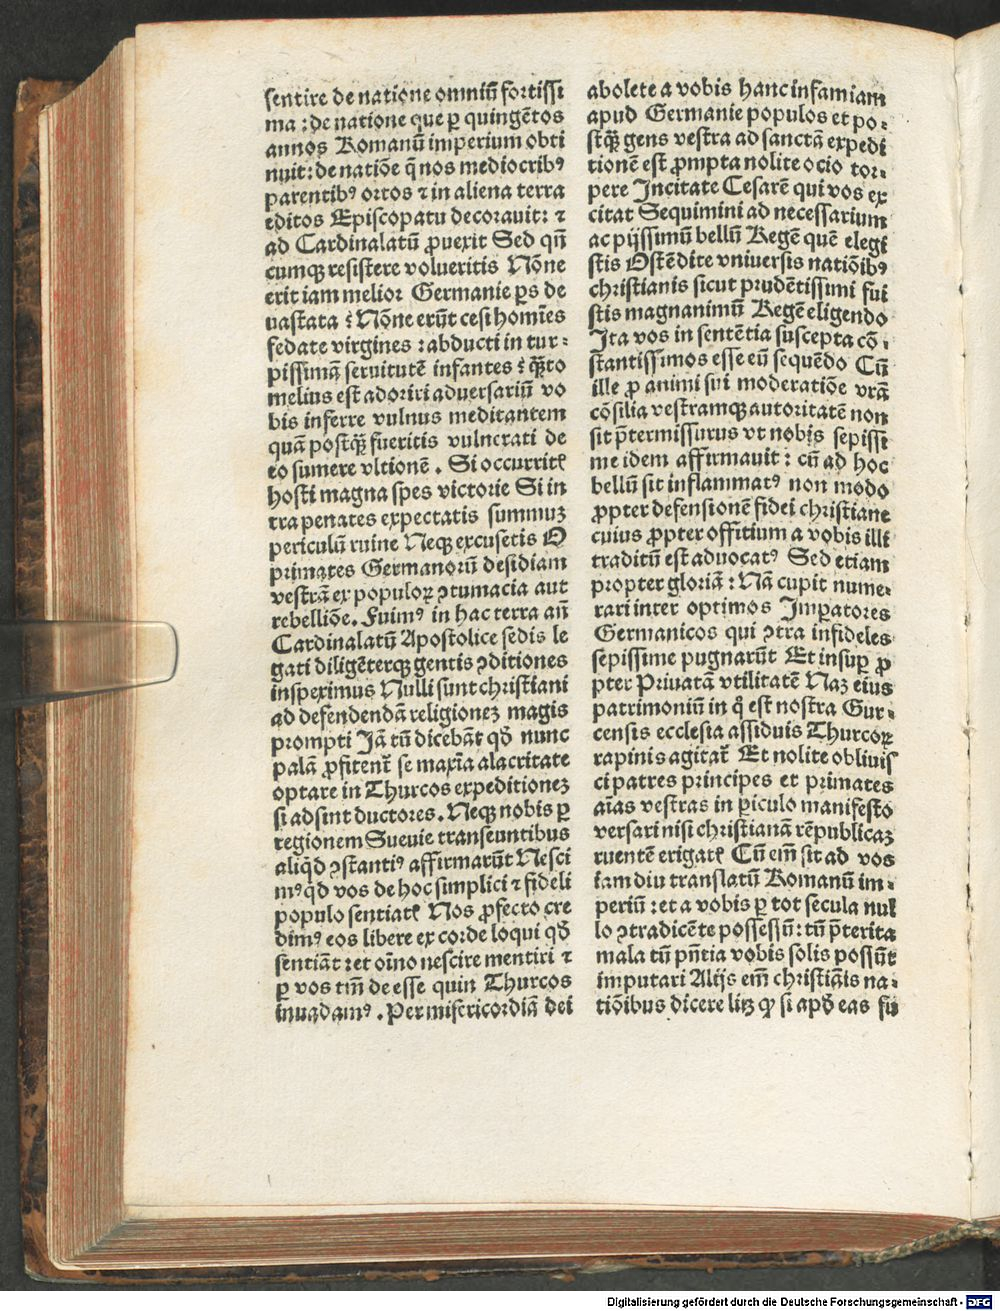 sentire de natione omniū fortissi
ma : de natione que ꝑ quingētos
annos Romanū imperium obti
nuit : de natiōe q̄ nos mediocribꝰ
parentibꝰ ortos ⁊ in aliena terra
editos Episcopatu decorauit : ⁊
ad Cardinalatū ꝓuexit Sed qn̄
cumqꝫ resistere volueritis Nōne
erit iam melior Germanie ꝑs de
uastata ? Nōne erūt cesi homīes
fedate virgines : abducti in tur⸗
pissimā seruitutē infantes ? q̄ꝫto
melius est adoriri aduersariū vo
bis inferre vulnus meditantem
quā postqꝫ̄ fueritis vulnerati de
eo sumere vltionē . Si occurritꝭ
hosti magna spes victorie Si in
tra penates expectatis summuꝫ
periculū ruine Neqꝫ excusetis O
primates Germanorū desidiam
vestrā ex populoꝝ ꝯtumacia aut
rebelliōe . Fuimꝰ in hac terra an̄
Cardinalatū Apostolice sedis le
gati diligēterqꝫ gentis ꝯditiones
inspeximus Nulli sunt christiani
ad defendendā religioneꝫ magis
prompti Jā tū dicebāt qꝺ̄ nunc
palā ꝓfitent̄ se maxīa alacritate
optare in Thurcos expeditioneꝫ
si adsint ductores . Neqꝫ nobis ꝑ
regionem Sueuie transeuntibus
aliqͥd ꝯstantiꝰ affirmarūt Nesci
mꝰ qͥd vos de hoc simplici ⁊ fideli
populo sentiatꝭ Nos ꝓfecto cre
dimꝰ eos libere ex corde loqui qꝺ̄
sentiāt : et oīno nescire mentiri ⁊
ꝑ vos tm̄ de esse quin Thurcos
inuadamꝰ . Per misericordiā dei
abolete a vobis hanc infamiam
apud Germanie populos et po⸗
stqꝫ̄ gens vestra ad sanctā expedi
tionē est ꝓmpta nolite ocio tor⸗
pere Incitate Cesarē qui vos ex
citat Sequimini ad necessarium
ac pijssimū bellū Regē quē elegi
stis Ostēdite vniuersis natiōibꝰ
christianis sicut prudētissimi fui
stis magnanimū Regē eligendo
Ita vos in sentētia suscepta cō⸗
stantissimos esse eū sequēdo Cū
ille ꝓ animi sui moderatiōe vrā̄
cōsilia vestramqꝫ autoritatē non
sit p̄termissurus vt nobis sepissi
me idem affirmauit : cū ad hoc
bellū sit inflammatꝰ non modo
ꝓpter defensionē fidei christiane
cuius ꝓpter offitium a vobis illi
traditū est aduocatꝰ Sed etiam
propter gloriā : Nā cupit nume⸗
rari inter optimos Imꝑatores
Germanicos qui ꝯtra infideles
sepissime pugnarūt Et insuꝑ ꝓ
pter Priuatā vtilitatē Naꝫ eius
patrimoniū in q̄ est nostra Gur⸗
censis ecclesia assiduis Thurcoꝝ
rapinis agitat̄ Et nolite obliuis
ci patres principes et primates
aīas vestras in ꝑiculo manifesto
versari nisi christianā rēpublicaꝫ
ruentē erigatꝭ Cū em̄ sit ad vos
iam diu translatū Romanū im⸗
periū : et a vobis ꝑ tot secula nul
lo ꝯtradicēte possessū : tū p̄terita
mala tū pn̄tia vobis solis possūt
imputari Alijs em̄ christiāis na⸗
tiōibus dicere liꝫ ꝙ si apꝺ̄ eas fu